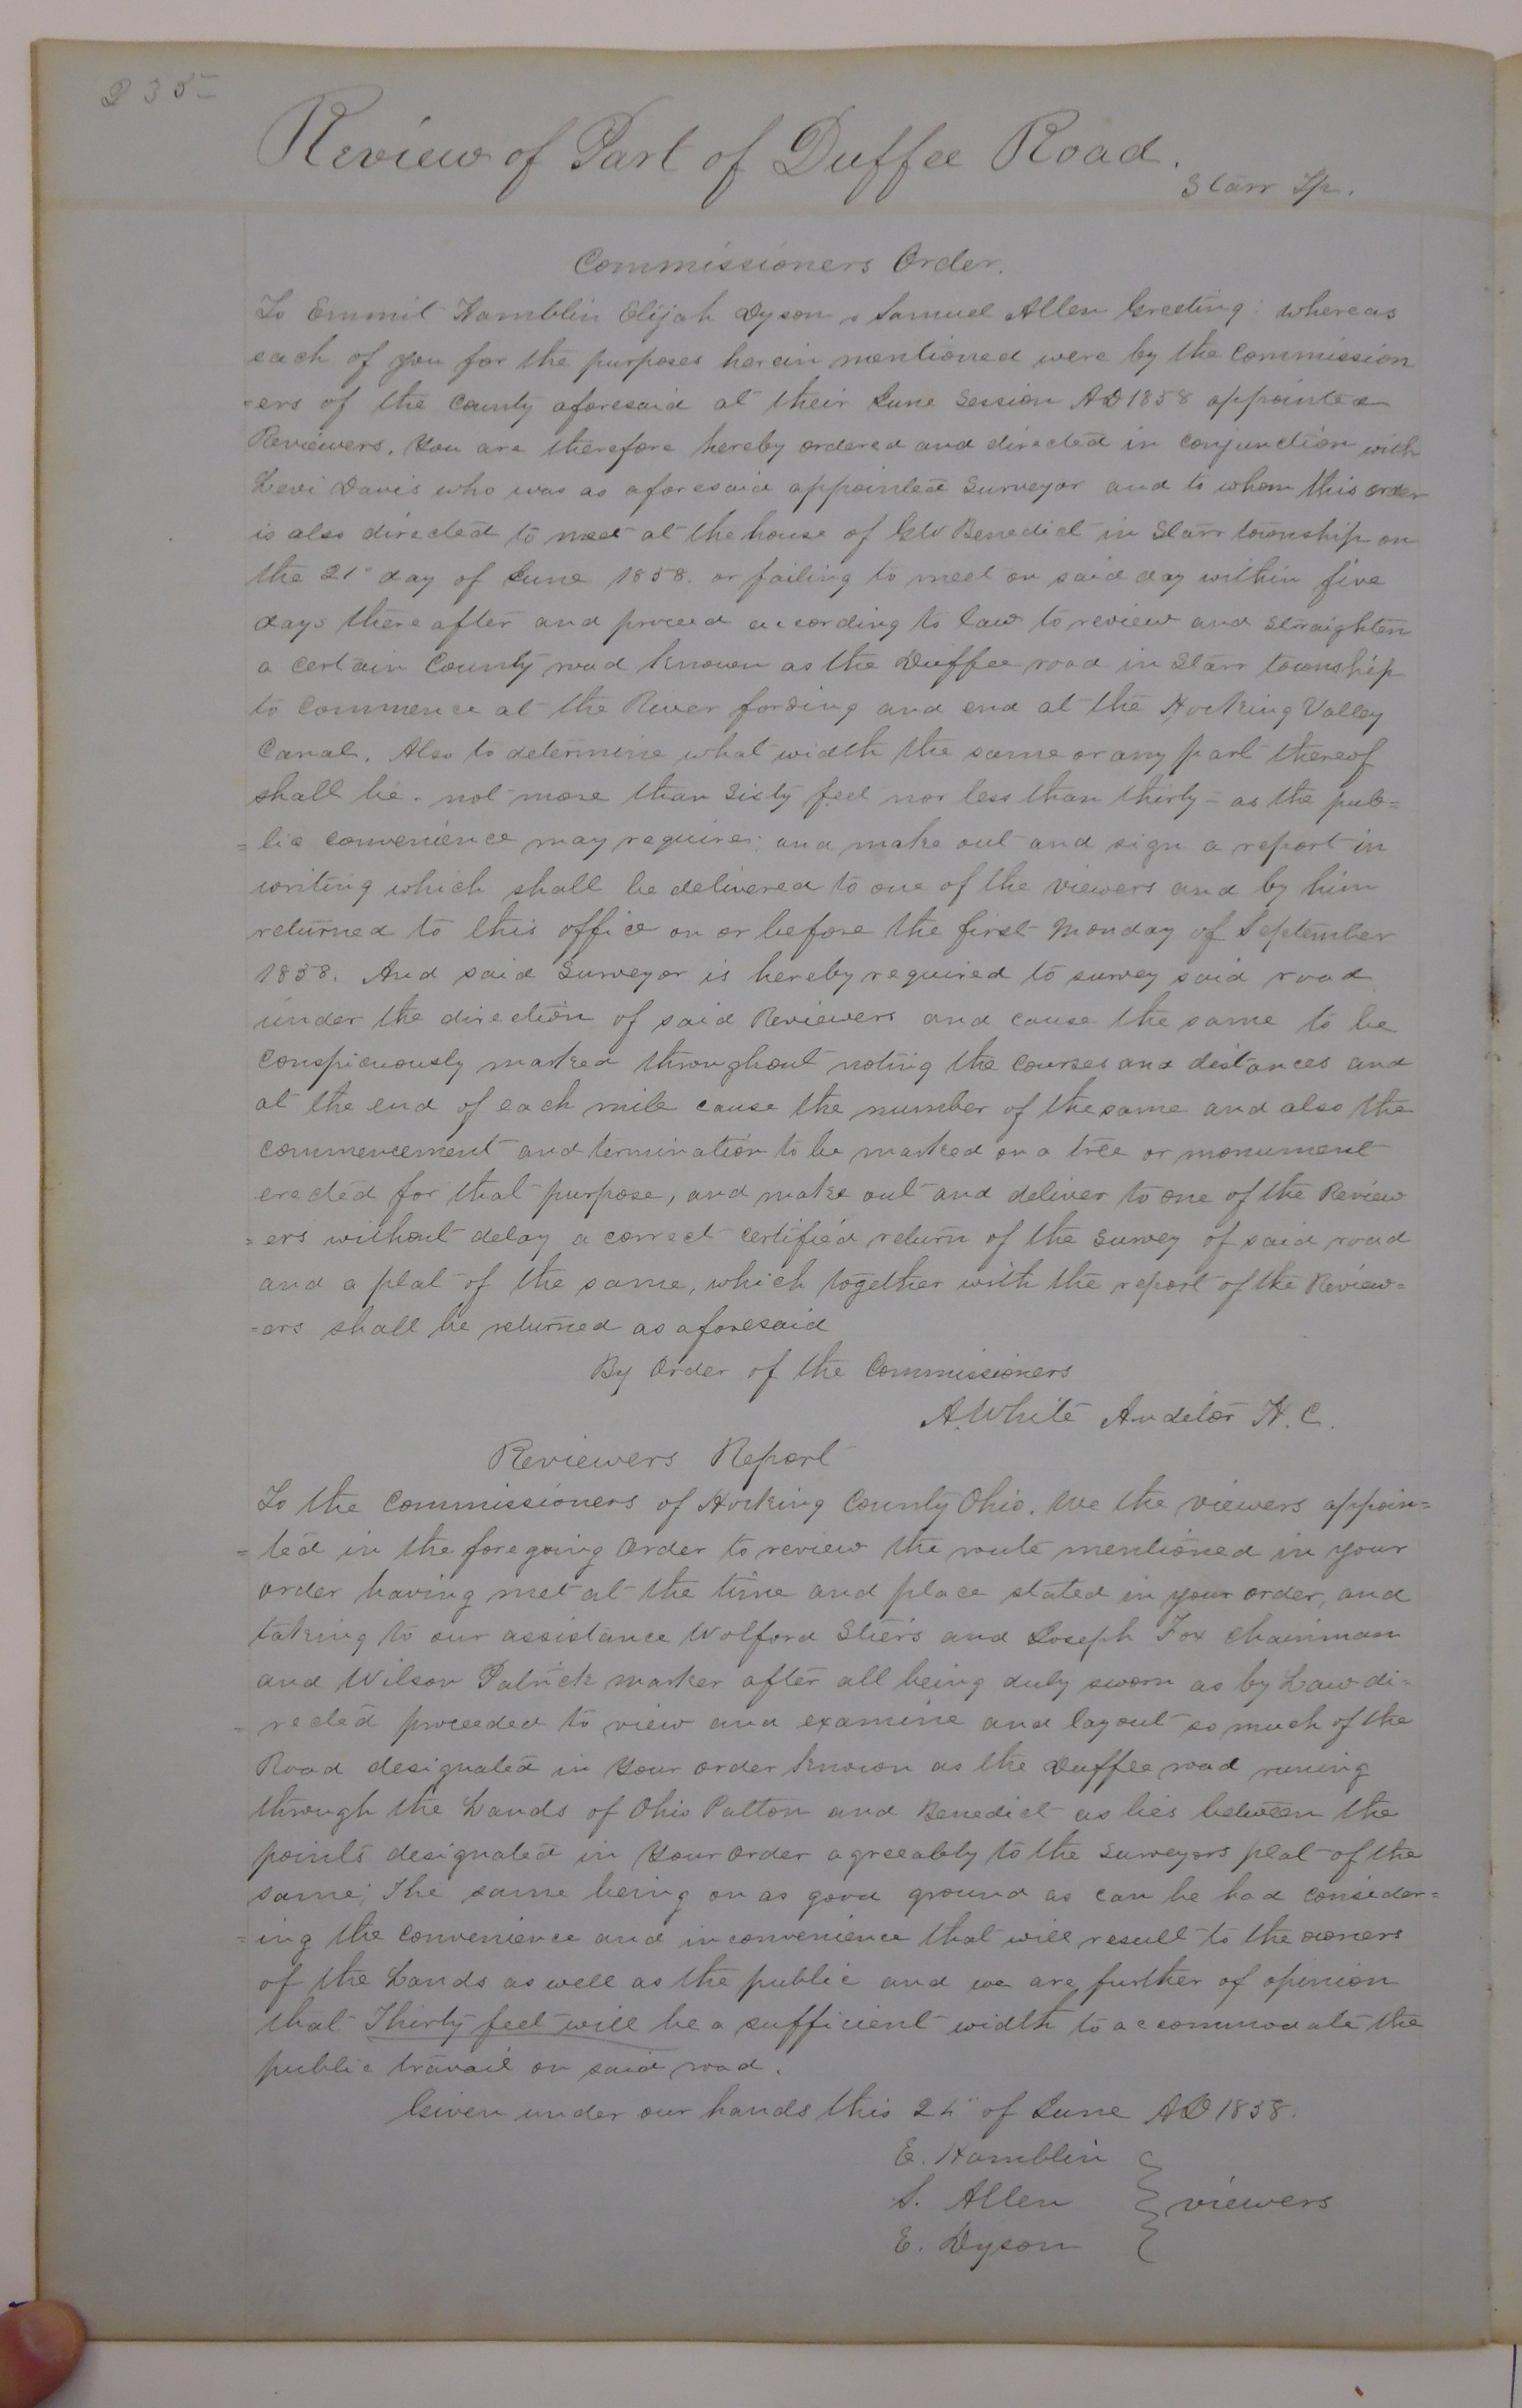 235
Review of Part of Duffee Road.
Starr Tp.
Commissioners Order.
To Emmit Hamblin Elijah Dyson & Samuel Allen Greeting: whereas
each of you for the purposes herein mentioned were by the Commission
-ers of the County aforesaid at their June Session AD 1858 appointed
Reviewers. You are therefore hereby ordered and directed in conjunction with
Levi Davis who was as aforesaid appointed Surveyor and to whom this order
is also directed to meet at the house of GW Benedict in Starr township on
the 21" day of June 1858. or failing to meet on said day within five
days there after and proceed according to law to review and Straighten
a certain County road known as the Duffee road in Starr township
to Commence at the River fording and end at the Hocking Valley
Canal. Also to determine what width the same or any part thereof
shall be - not more than Sixty feet nor less than thirty - as the pub=
=lic convenience may require; and make out and sign a report in
writing which shall be delivered to one of the viewers and by him
returned to this office on or before the first Monday of September
1858. And said Surveyor is hereby required to survey said road
under the direction of said Reviewers and cause the same to be
Conspicuously marked throughout noting the Courses and distances and
at the end of each mile cause the number of the same and also the
commencement and termination to be marked on a tree or monument
erected for that purpose, and make out and deliver to one of the Review
=ers without delay a correct certified return of the Survey of said road
and a plat of the same, which together with the report of the Review=
=ers shall be returned as aforesaid
By Order of the Commissioners
A. White Auditor H. C.
Reviewers Report
To the Commissioners of Hocking County Ohio. We the viewers appoin=
=ted in the foregoing Order to review the route mentioned in your
order having met at the time and place stated in your order, and
taking to our assistance Wolford Stiers and Joseph Fox Chainman
and Wilson Patrick marker after all being duly sworn as by Law di=
=rected proceeded to view and examine and layout so much of the
Road designated in Your order known as the Duffee road runing
through the Lands of Ohio Patton and Benedict as lies between the
points designated in Your Order agreeably to the Surveyors plat of the
same; The same being on as good ground as can be had consider=
=ing the Convenience and inconvenience that will result to the owners
of the Lands as well as the public and we are further of opinion
that Thirty feet will be a sufficient width to accommodate the
public travail on said road.
Given under our hands this 24" of June AD 1858.
E. Hamblin
S. Allen viewers
E. Dyson